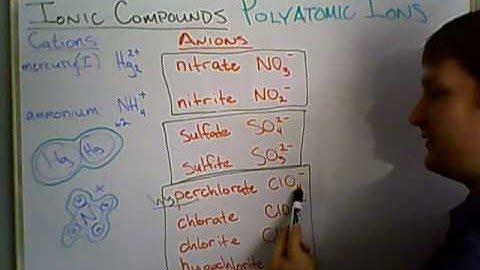 IONIC COMPOUNDS POLYATOMIC IONS
Cations
mercury(I) Hg₂²⁺
ammonium NH₄⁺
Hg Hg
N
+
ANIONS
nitrate NO₃⁻
nitrite NO₂⁻
sulfate SO₄²⁻
sulfite SO₃²⁻
perchlorate ClO⁻
chlorate ClO
chlorite Cl
hypochlorite